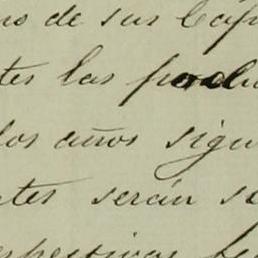 no de sus Cap
tes las produ
los años sigu
ntes serán s
espectivas fe